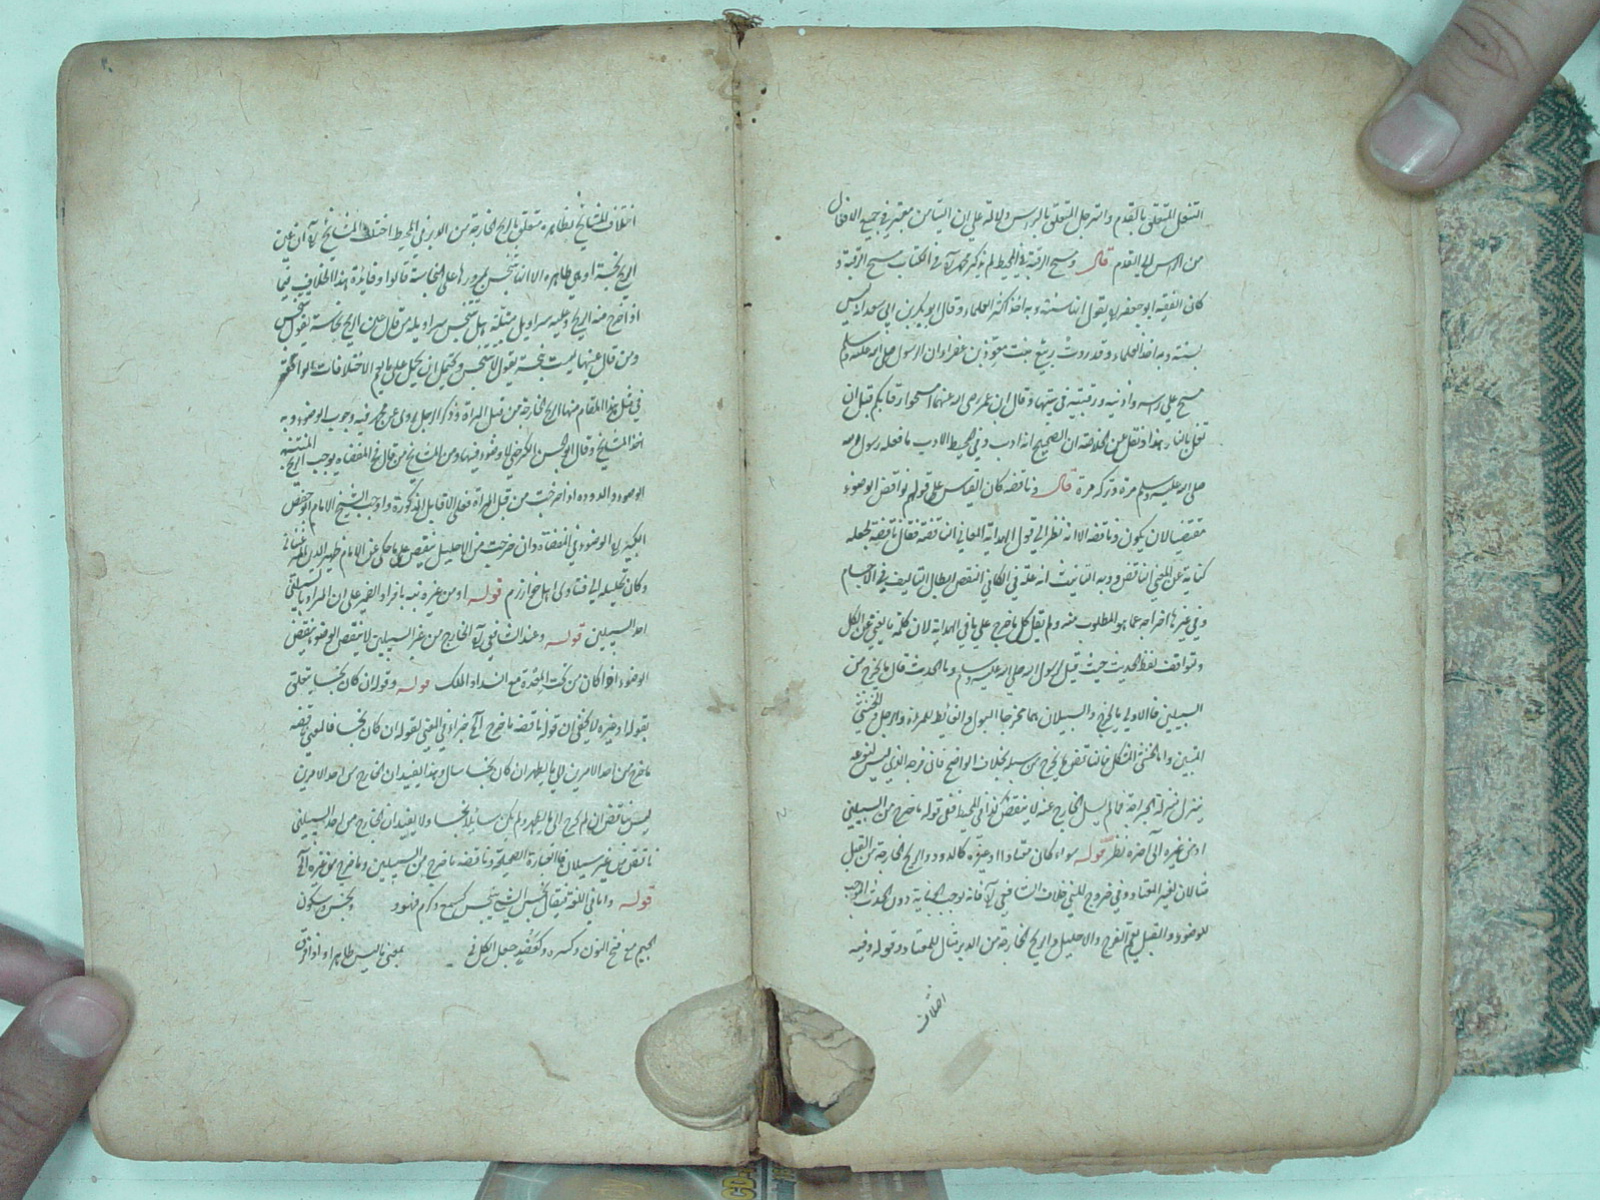 التنعل المتعلق بالقدم والترجل المتعلق بالرأس دلالة على ان التيامن معتبر في جميع الافعال
من الرأس الى القدم قال ومسح الرقبة في المحيط لم يذكر محمد في الكتاب مسح الرقبة و
كان الفقيه ابو جعفر يقول انه سنة وبه اخذ اكثر العلماء وقال ابو بكر بن ابي سعد انه ليس
بسنة وبه اخذ العلماء وقد روت ربيع بنت معوذ بن عفراء ان الرسول صلى الله عليه وسلم
مسح على رأسه واذنيه ورقبته وقال ابن عمر رضي الله عنهما امسحوا رقابكم قبل ان
تغل بالنار هذا ونقل عن الخلاصة ان الصحيح انه ادب وفي المحيط الادب ما فعله رسول الله
صلى الله عليه وسلم مرة وتركه مرة قال وناقضه كان القياس على قولهم نواقض الوضوء
مقتضيا لان يكون ونواقضه الا انه نظر الى قول الهداية المعاني الناقضة فقال ناقضه لجعله
كناية عن المعنى الناقض وبه التانيث انه علة في الكافي النقض ابطال التأليف في الاجسام
وفي غيرها اخراجه عما هو المطلوب منه ولم يقل كل ما خرج على ما في الهداية لان كلمة ما تغني عن الكل
ولتوافق لفظ الحديث حيث قيل لرسول الله صلى الله عليه وسلم وما الحدث قال ما يخرج من
السبيلين فالاولى ما يخرج والسبيلان هما مخرجا البول والغائط للمرأة والرجل والخنثى
المتبين واما الخنثى المشكل فانما ينقض ما يخرج من
ينزل منزلة الجراحة فما لم يسل الخارج عنه لا ينقض كذا في المحيط ففي قوله ما خرج من السبيلين
او من غيره الى آخره نظر قوله سواء كان معتادا او غيره كالدودة والريح الخارجة من القبل
مثالان لغير المعتاد وفي خروج المني خلاف الشافعي فانه يوجب الجنابة دون الحدث الموجب
للوضوء والقبل يعم الفرج والاحليل والريح الخارجة من الدبر مثال للمعتاد وقوله وفيه
اختلاف
اختلاف المشايخ بظاهره متعلق بالريح الخارجة من الدبر في المحيط اختلف المشايخ في ان عين
الريح نجسة او هي طاهرة الا انها تنجس بمرورها على النجاسة قالوا وفائدة هذا الخلاف فيما
اذا خرج منه الريح وعليه سراويل مبتلة هل يتنجس سراويله من قال عين الريح نجاسة يقول تنجس
ومن قال عينها ليست بنجسة يقول لا يتنجس ويحتمل ان يحمل على ما يعم الاختلافات الواقعة
في مثل هذا المقام منها الريح الخارجة من قبل المرأة وذكر الرجل روي عن محمد فيه وجوب الوضوء وبه
اخذ المشايخ وقال ابو الحسن الكرخي لا وضوء فيهما ومن المشايخ من قال في المفضاة يوجب الريح المنتنة
الوضوء والدودة اذا خرجت من قبل المرأة فعلى الاقاويل المذكورة واوجب الشيخ الامام ابو حفص
الكبير الوضوء في المفضاة وان خرجت من الاحليل ينقض على ما حكي عن الامام ظهير الدين المرغيناني
وكان يحيله الى فتاوى اهل خوارزم قوله او من غيره نبه بافراد الضمير على ان المراد بالسبيلين
احد السبيلين قوله وعند الشافعي الخارج من غير السبيلين لا ينقض الوضوء ينقض
الوضوء اذا كان من تحت المعدة مع انسداد المسلك قوله وقوله ان كان نجسا متعلق
بقوله او غيره لا يخفى ان قوله ناقضه ما خرج الى آخره جزاء في المعنى لقوله ان كان نجسا فالمعنى ناقضه
ما خرج من احد الامرين الى ما يطهر ان كان نجسا سال وهذا يفيد ان الخارج من احد الامرين
ليس ناقض ان لم يخرج الى ما يطهر ولم يكن سائلا نجسا ولا يفيد ان الخارج من احد السبيلين
ناقض من غير سيلان فالعبارة الصحيحة وناقضه ما خرج من السبيلين وما خرج من غيره الى
قوله واما في اللغة فيقال نجس الشيء ينجس كسمع وكرم فهو ونجس وسكون
الجيم مع فتح النون وكسره وكعضد جعل الكل في بمعنى ما ليس طاهرا واذا فرق